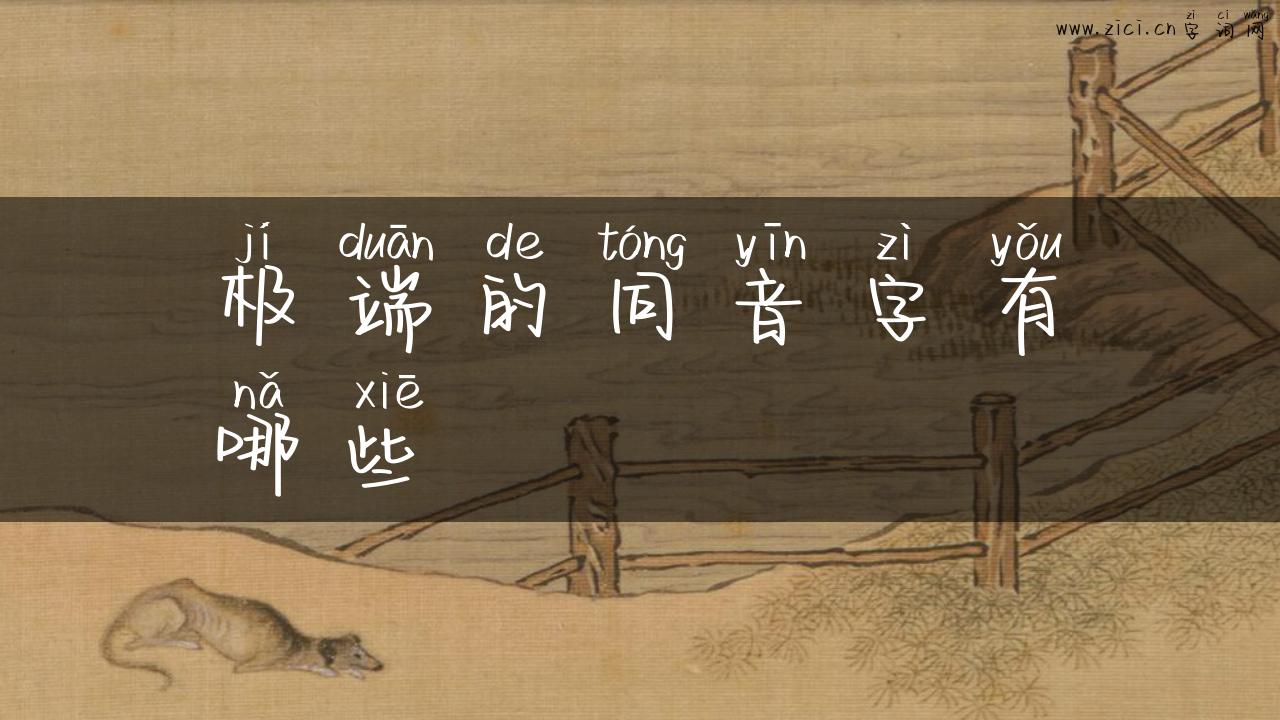 zì cí wǎng
www.zici.cn 字词网
jí duān de tóng yīn zì yǒu
极端的同音字有
nǎ xiē
哪些